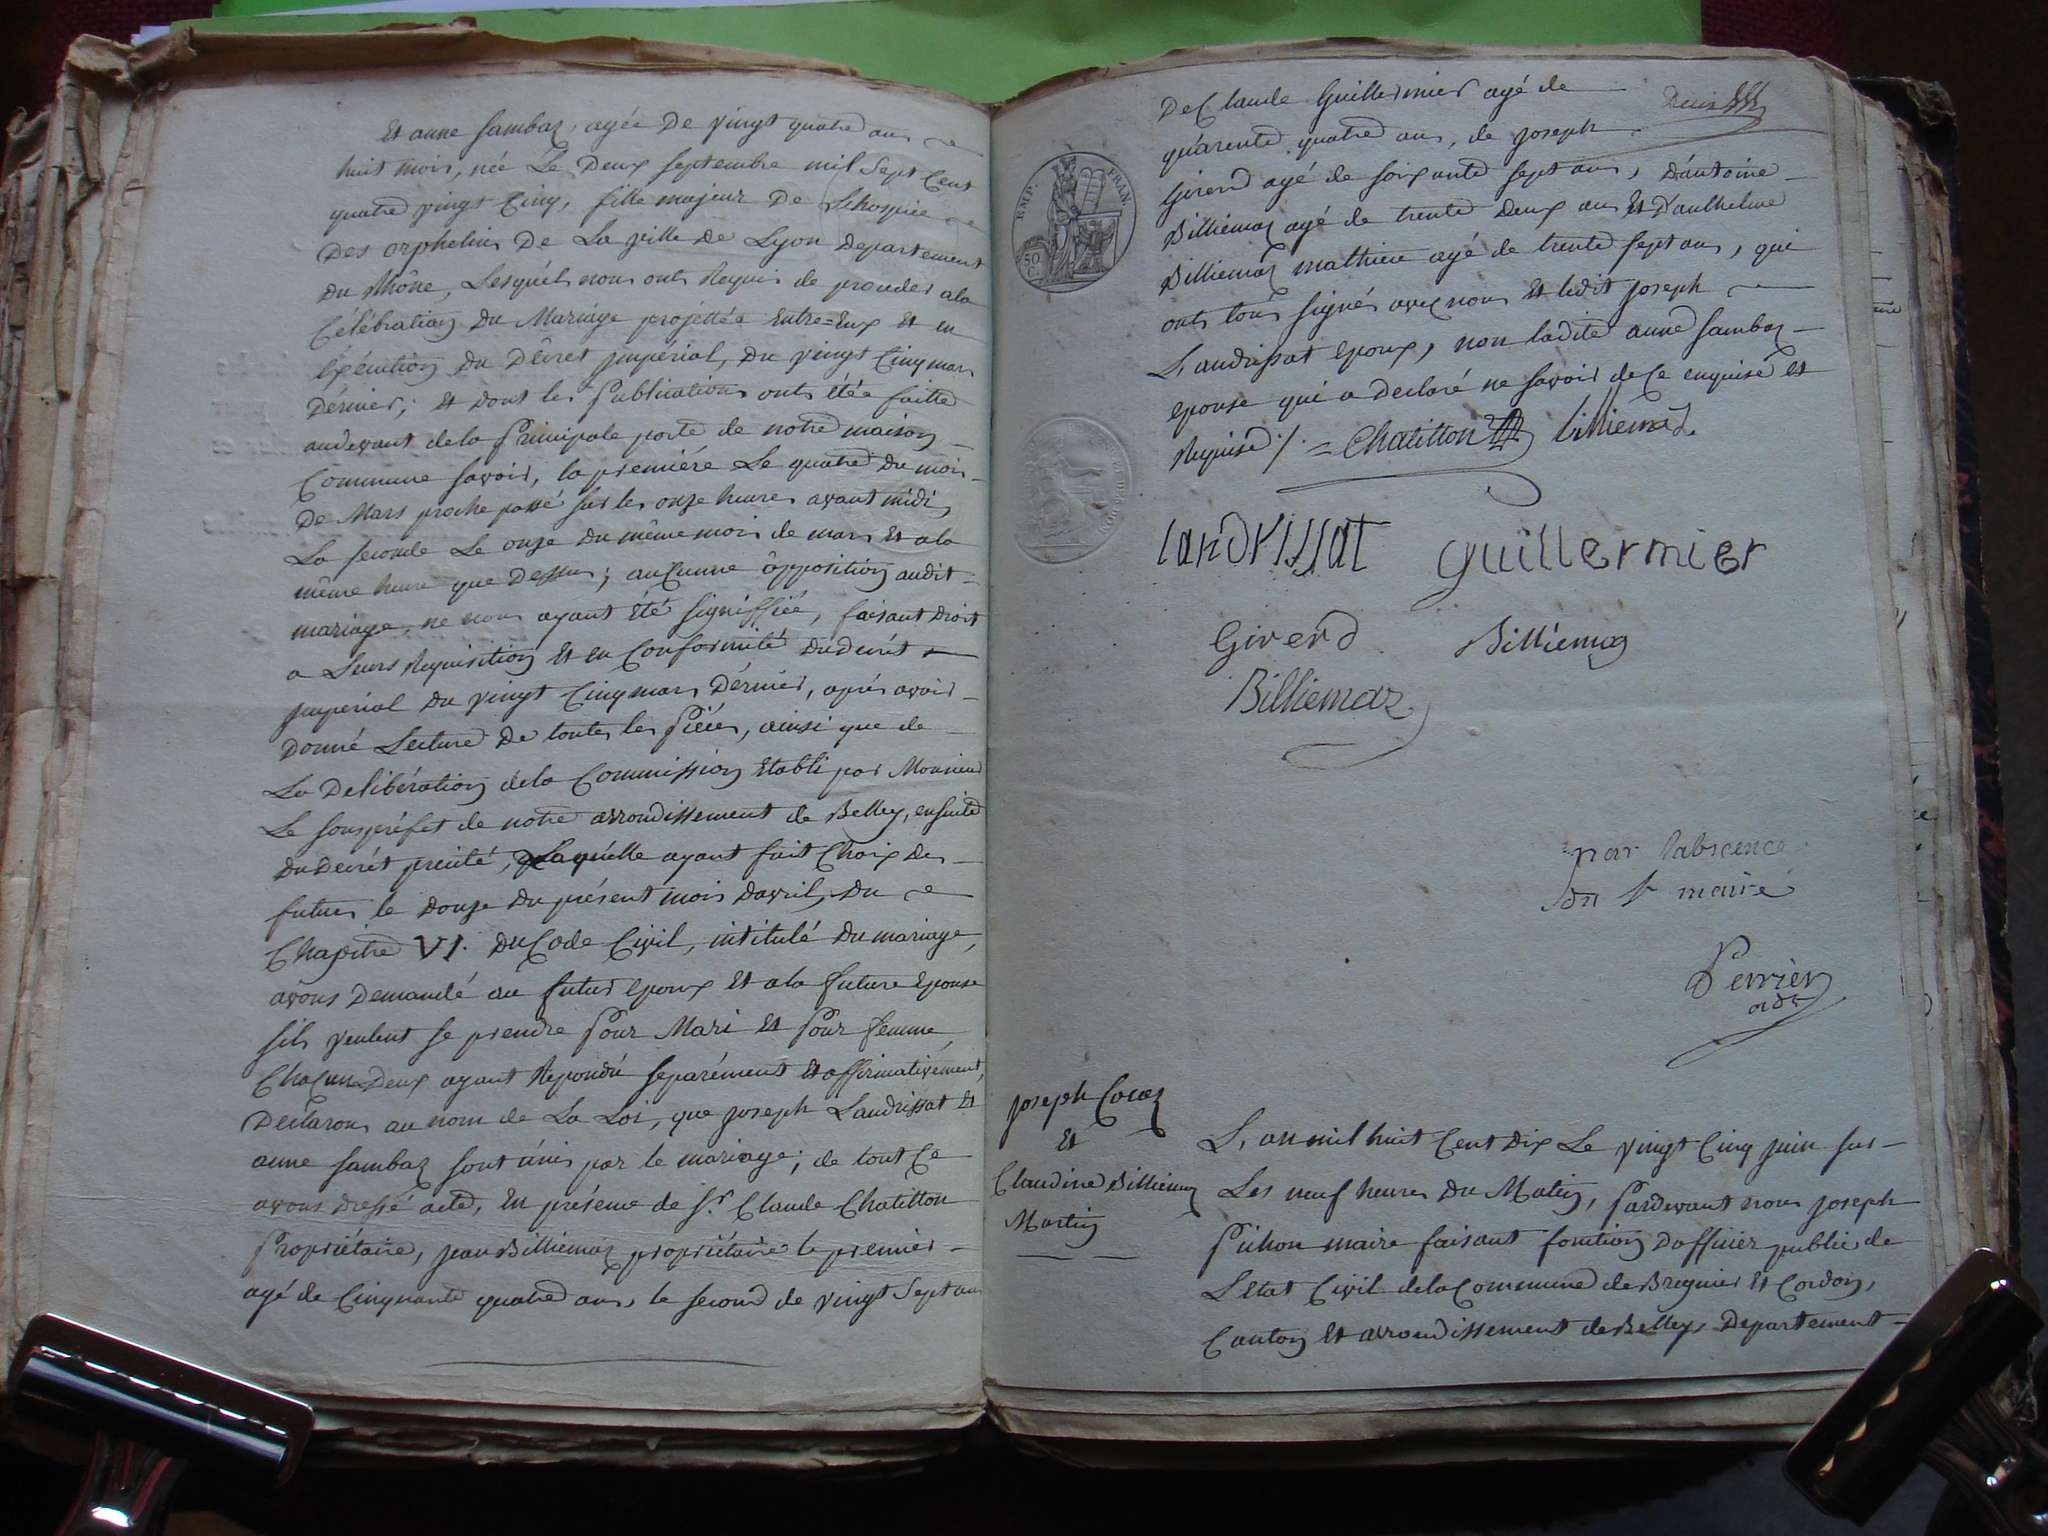 Et anne Sambaz, agée De vingt quatre ans
huit mois, née Le Deux Septembre mil Sept Cent
quatre vingt Cinq, fille majeur De Lhospice
Des orphelins De La ville De Lyon Departement
Du Rhône, Lesquéls nous onts Requis de proceder a la
Célébration Du Mariage projettée Entre=Eux Et en
Exécution Du Décret jmpérial, Du vingt Cinq mars
Dérnier; Et Dont les Publications onts étée faitte
audevant de la Principale porte de notre maison
Commune Savoir, la premiére Le quatre Du mois
De Mars proche passé Sur les onze heures avant midi,
La seconde Le onze Du même mois de mars Et a la
même heure que Dessus; auCunne ôpposition audit
mariage, ne nous ayant Été signiffiée, faisant Droit
a Leurs Requisition Et en Conformité Dudécrét
jmpérial Du vingt Cinq mars Dérnier, aprés avoir
Donné Lecture De toutes les Piéces, ainsi que de
La Delibération de la Commission Etabli par Monsieur
Le sous préfet de notre arrondissement de Belley, ensuite
Du Décrét précité, Laquélle ayant fait Choix Des
futurs le Douze Du présent mois Davril, Du
Chapitre VI. Du Code Civil, intitulé Du mariage,
avons Demandé au futur epoux Et a la future Epouse
sils veulent se prendre Pour Mari Et Pour femme,
ChaCun Deux ayant Répondu separément Et affirmativement,
Déclarons au nom de La Loi, que joseph Landrissat Et
anne Sambaz sont unis par le mariage; de tout Ce
avons dressé acte, En présence de Sr. Claude Chatitton
Propriétaire, jean Billiemaz propriétaire le premier
agé de Cinquante quatre ans, le second de vingt Sept ans
De Claude Guillermier agé de
quarente quatre ans, de joseph
Girerd agé de soixante sept ans, D'antoine
Billiemaz agé de trente Deux ans Et D'anthelme
Billiemaz mathieu agé de trente sept ans, qui
onts tous signés avec nous Et ledit joseph
Landrissat epoux, non ladite anne Sambaz
epouse qui a declaré ne savoir de Ce enquise et
Requise ./. = Chatitton Billiemaz
EMP. FRAN.
50 C.
landrissat guillermier
Girerd Billiemaz
Billiemaz
par labscence
du Sr maire
Perrier
adt
joseph Cocaz
Et
Claudine Billiemaz
Martin
L'an mil huit Cent Dix Le vingt Cinq juin sur
Les neuf heures Du Matin, Pardevant nous joseph
Pichon maire faisant fonction Dofficier public de
Létat Civil de la Commune de Bregnier Et Cordon,
Canton Et arrondissement de Belley, Departement